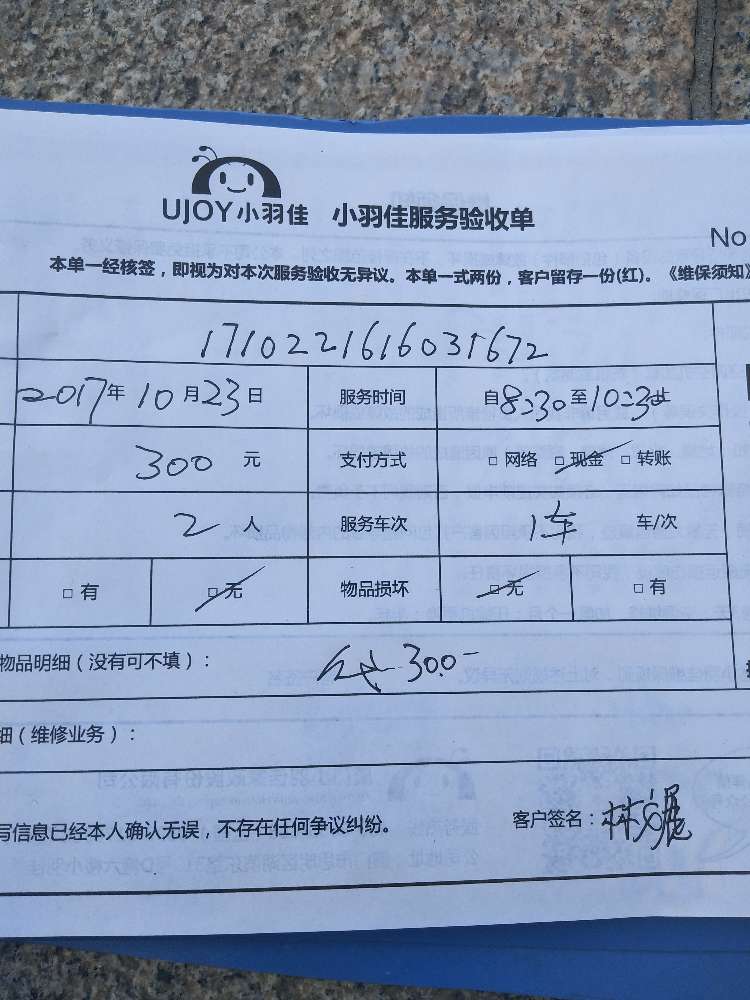 UJOY小羽佳 小羽佳服务验收单
No
本单一经核签，即视为对本次服务验收无异议。本单一式两份，客户留存一份(红)。《维保须知》
1710221616031672
2017年10月23日 服务时间 自8:30至10:30止
300 元 支付方式 □网络 □现金 □转账
2 人 服务车次 1车 车/次
□有 □无 物品损坏 □无 □有
物品明细（没有可不填）：300-
细（维修业务）：
写信息已经本人确认无误，不存在任何争议纠纷。 客户签名：林